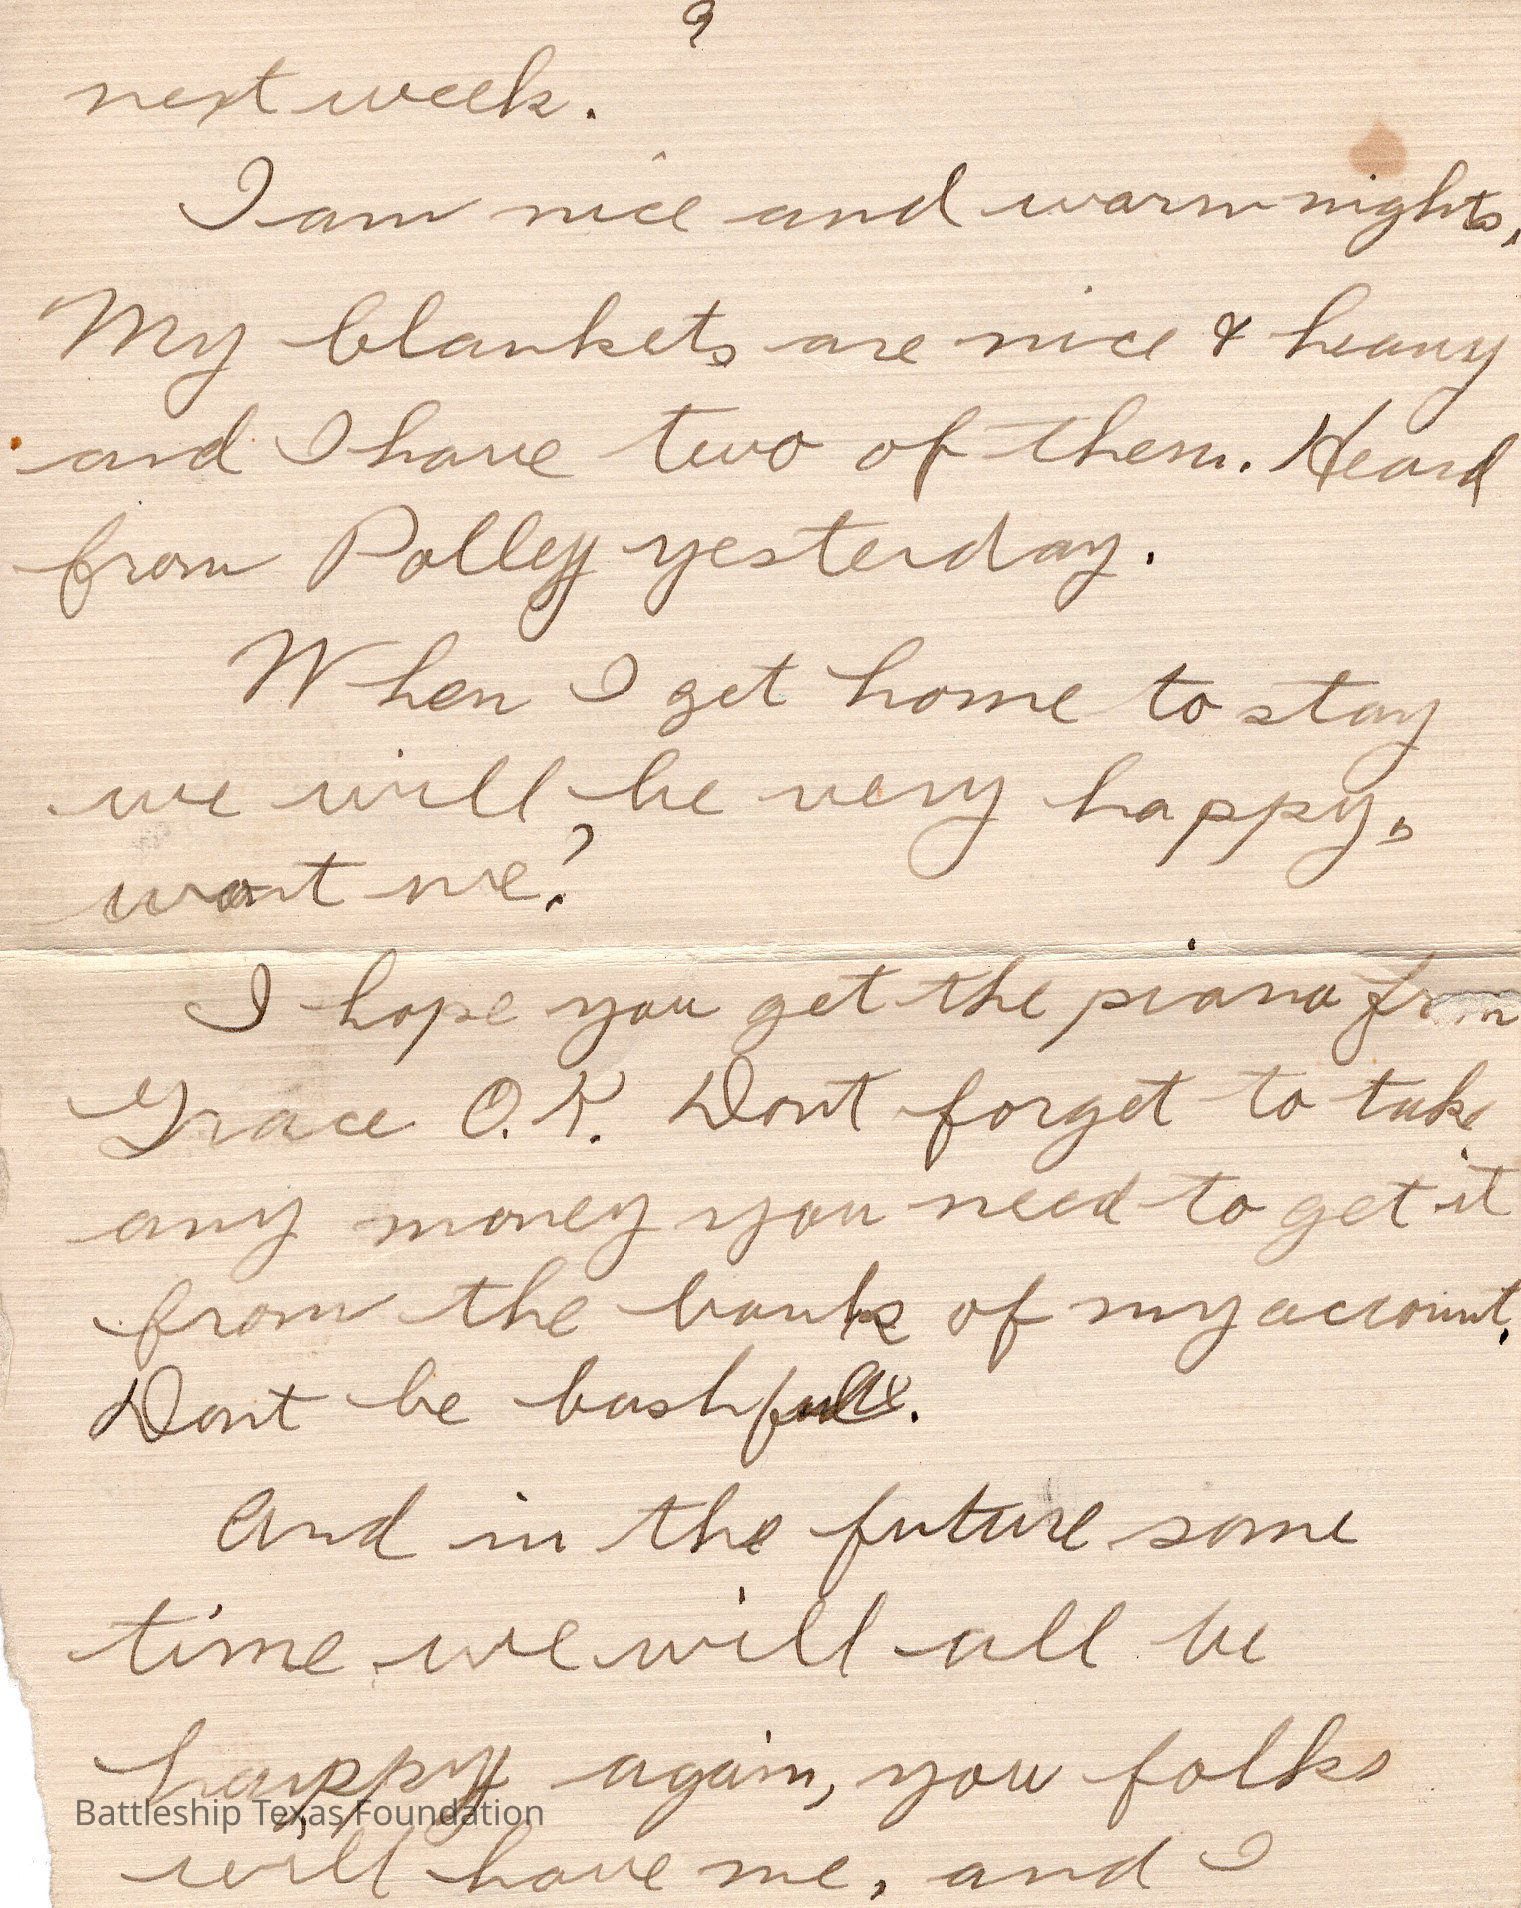 9
next week.
I am nice and warm nights.
My blankets are nice & heavy
and I have two of them. Heard
from Polley yesterday.
When I get home to stay
we will be very happy,
wont we?
I hope you get the piano from
Grace O.K. Dont forget to take
any money you need to get it
from the bank of my account.
Dont be bashful.
And in the future some
time we will all be
happy again, you folks
Battleship Texas Foundation
will have me, and I